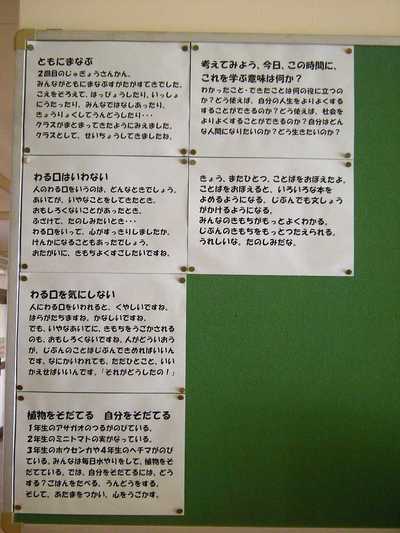 ともにまなぶ
2回目のじゅぎょうさんかん。
みんながともにまなぶすがたがすてきでした。
こえをそろえて、はっぴょうしたり、いっしょ
にうたったり、みんなではなしあったり、
きょうりょくしてうんどうしたり・・・
クラスがまとまってきたようにみえました。
クラスとして、せいちょうしてきましたね。
わる口はいわない
人のわる口をいうのは、どんなときでしょう。
あいてが、いやなことをしてきたとき。
おもしろくないことがあったとき。
ふざけて、たのしみたいとき・・・
わる口をいって、心がすっきりしましたか。
けんかになることもあったでしょう。
おたがいに、きもちよくすごしたいですね。
わる口を気にしない
人にわる口をいわれると、くやしいですね。
はらがたちますね。かなしいですね。
でも、いやなあいてに、きもちをうごかされる
のも、おもしろくないですね。人がどういおう
が、じぶんのことはじぶんできめればいいん
です。なにかいわれても、ただひとこと、いい
かえせばいいんです。「それがどうしたの!」
植物をそだてる 自分をそだてる
1年生のアサガオのつるがのびている。
2年生のミニトマトの実がなっている。
3年生のホウセンカや4年生のヘチマがのび
ている。みんなは毎日水やりをして、植物をそ
だてている。では、自分をそだてるには、どう
する?ごはんをたべる。うんどうをする。
そして、あたまをつかい、心をうごかす。
考えてみよう、今日、この時間に、
これを学ぶ意味は何か?
わかったこと・できたことは何の役に立つの
か?どう使えば、自分の人生をよりよくする
することができるのか?どう使えば、社会を
よりよくすることができるのか?自分はどん
な人間になりたいのか?どう生きたいのか?
きょう、またひとつ、ことばをおぼえたよ。
ことばをおぼえると、いろいろな本を
よめるようになる。じぶんでも文しょう
がかけるようになる。
みんなのきもちがもっとよくわかる。
じぶんのきもちをもっとつたえられる。
うれしいな。たのしみだな。